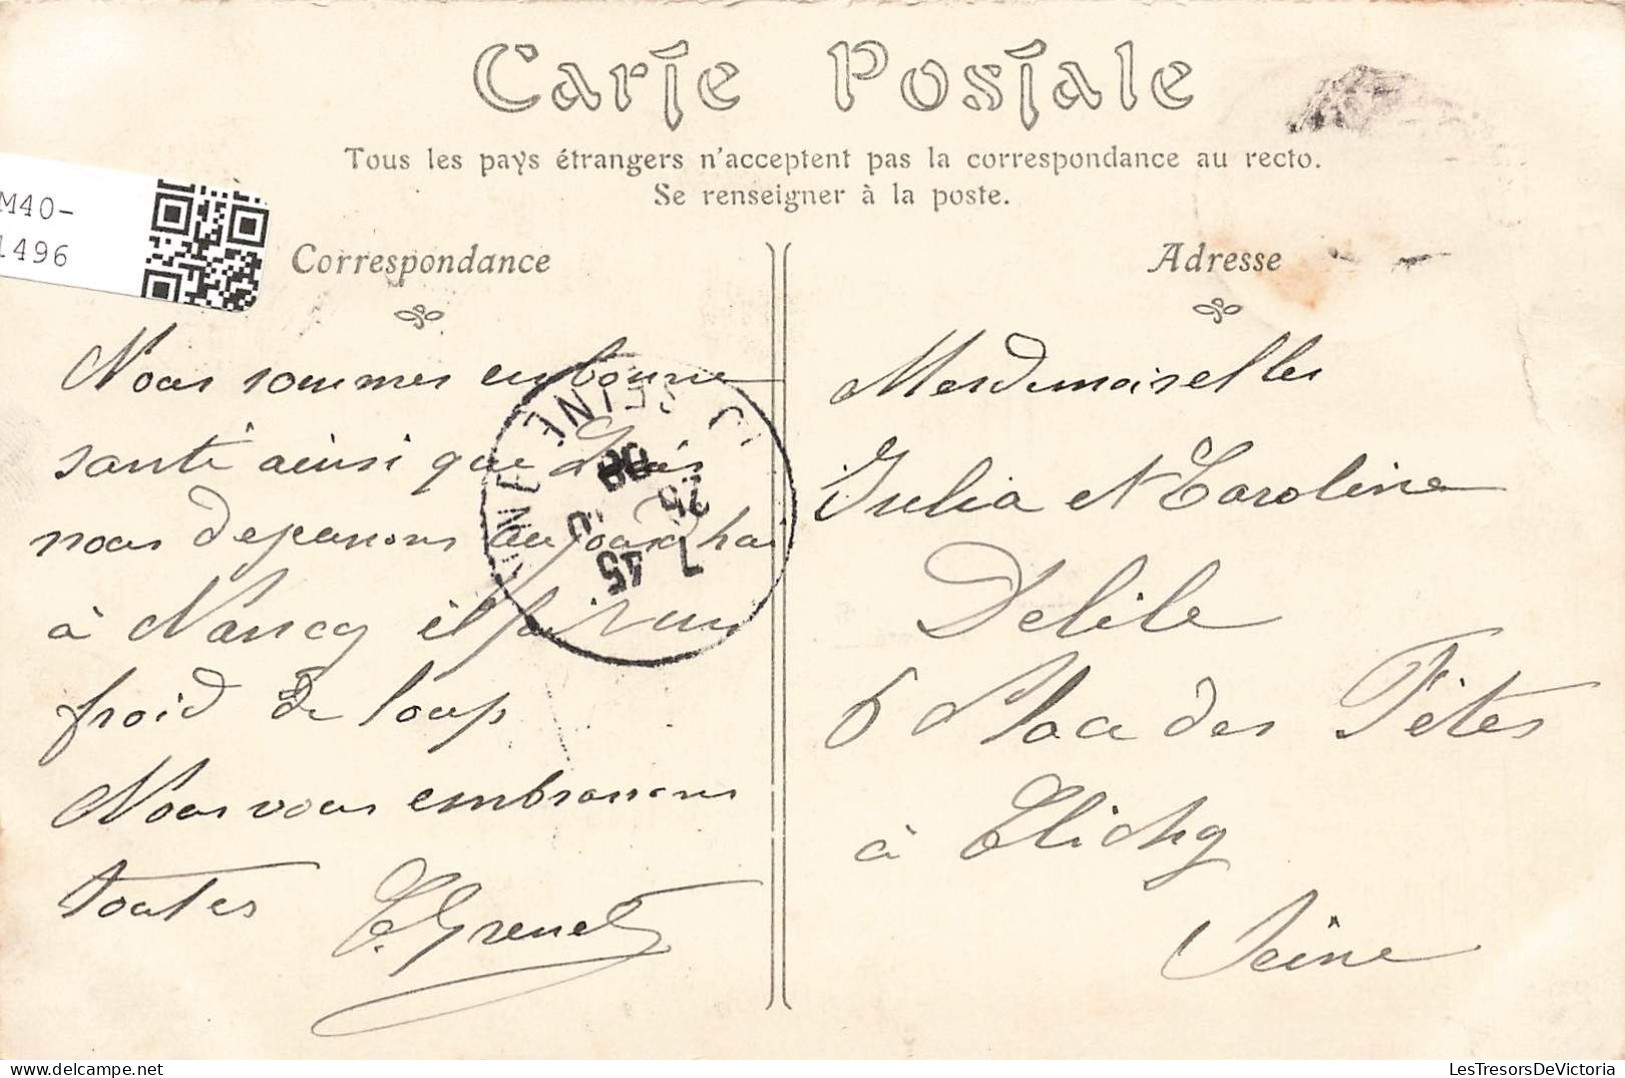 Carte Postale
Tous les pays étrangers n'acceptent pas la correspondance au recto.
Se renseigner à la poste.
M40-
1496
Correspondance
Nous sommes en bonne
santé ainsi que
nous dejeunons aujourdhui
à Nancy il fait un
froid de loup
Nous vous embrassons
toutes
C. Grenet
SEINE
7 45
25
08
Adresse
Mesdemoiselles
Julia et Caroline
Delile
6 Place des Fêtes
à Clichy
Seine
LesTresorsDeVictoria